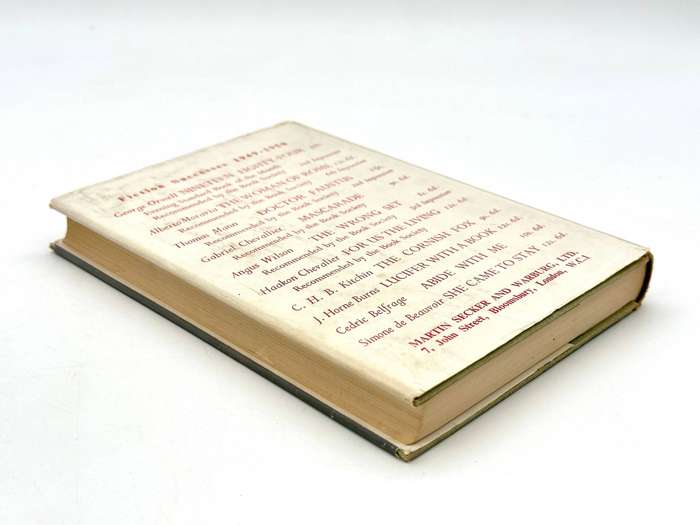 Fiction Successes 1949-1950
George Orwell NINETEEN EIGHTY-FOUR
Evening Standard Book of the Month
Recommended by the Book Society 2nd Impression
Alberto Moravia THE WOMAN OF ROME 12s. 6d.
Recommended by the Book Society Impression
Thomas Mann DOCTOR FAUSTUS
Recommended by the Book Society 2nd Impression
Gabriel Chevallier MASCARADE 9s. 6d.
Recommended by the Book Society
Angus Wilson THE WRONG SET 8s. 6d.
Recommended by the Book Society 3rd Impression
Haakon Chevalier FOR US THE LIVING 12s. 6d.
Recommended by the Book Society
C. H. B. Kitchin THE CORNISH FOX 9s. 6d.
J. Horne Burns LUCIFER WITH A BOOK 12s. 6d.
Cedric Belfrage ABIDE WITH ME 10s. 6d.
Simone de Beauvoir SHE CAME TO STAY 12s. 6d.
MARTIN SECKER AND WARBURG, LTD.
7, John Street, Bloomsbury, London, W.C.1